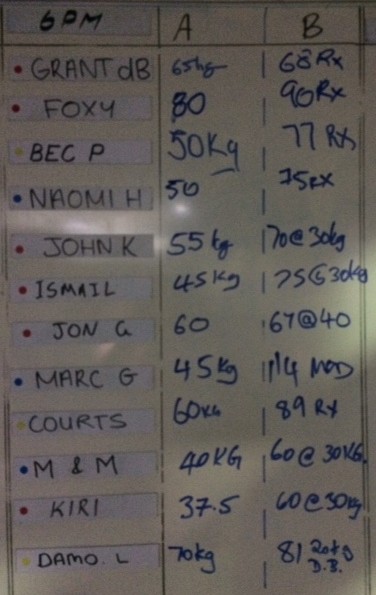 6PM A B
GRANT dB 65kg 68 Rx
FOXY 80 90 Rx
BEC P 50Kg 77 Rx
NAOMI H 50 75 RX
JOHN K 55 kg 70@30kg
ISMAIL 45Kg 75@30kg
JON G 60 67@40
MARC G 45kg 114 MOD
COURTS 60KG 89 Rx
M & M 40KG 60@30KG.
KIRI 37.5 60@30kg
DAMO. L 70kg 81 20kg D.B.